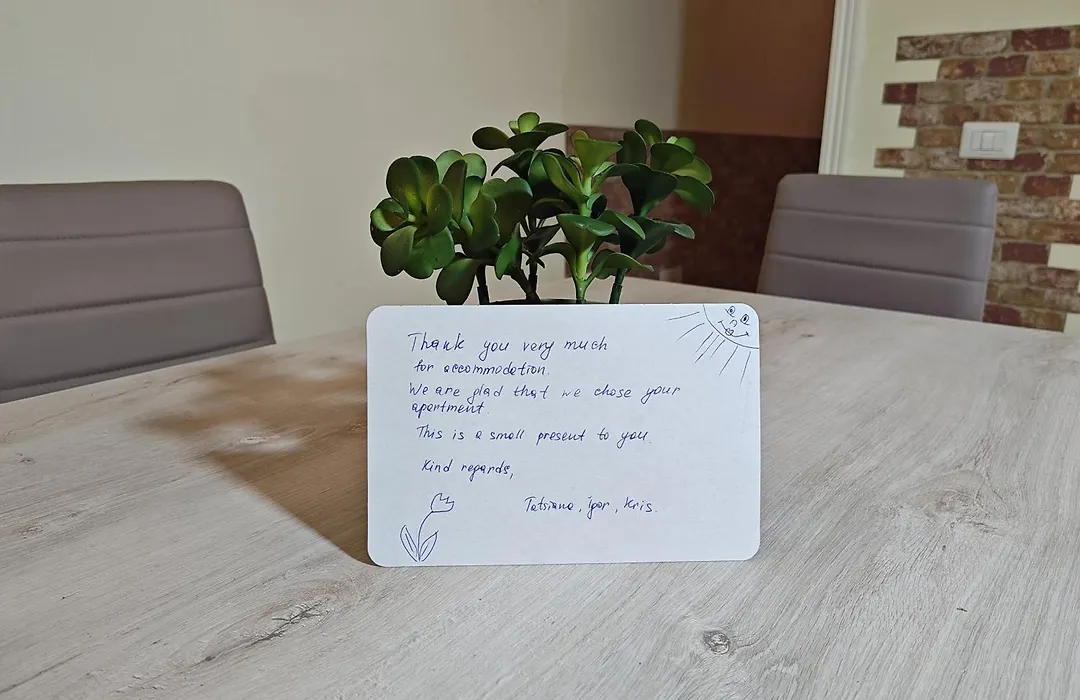 Thank you very much
for accommodation.
We are glad that we chose your
apartment.
This is a small present to you.
Kind regards,
Tatsiana, Igor, Kris.